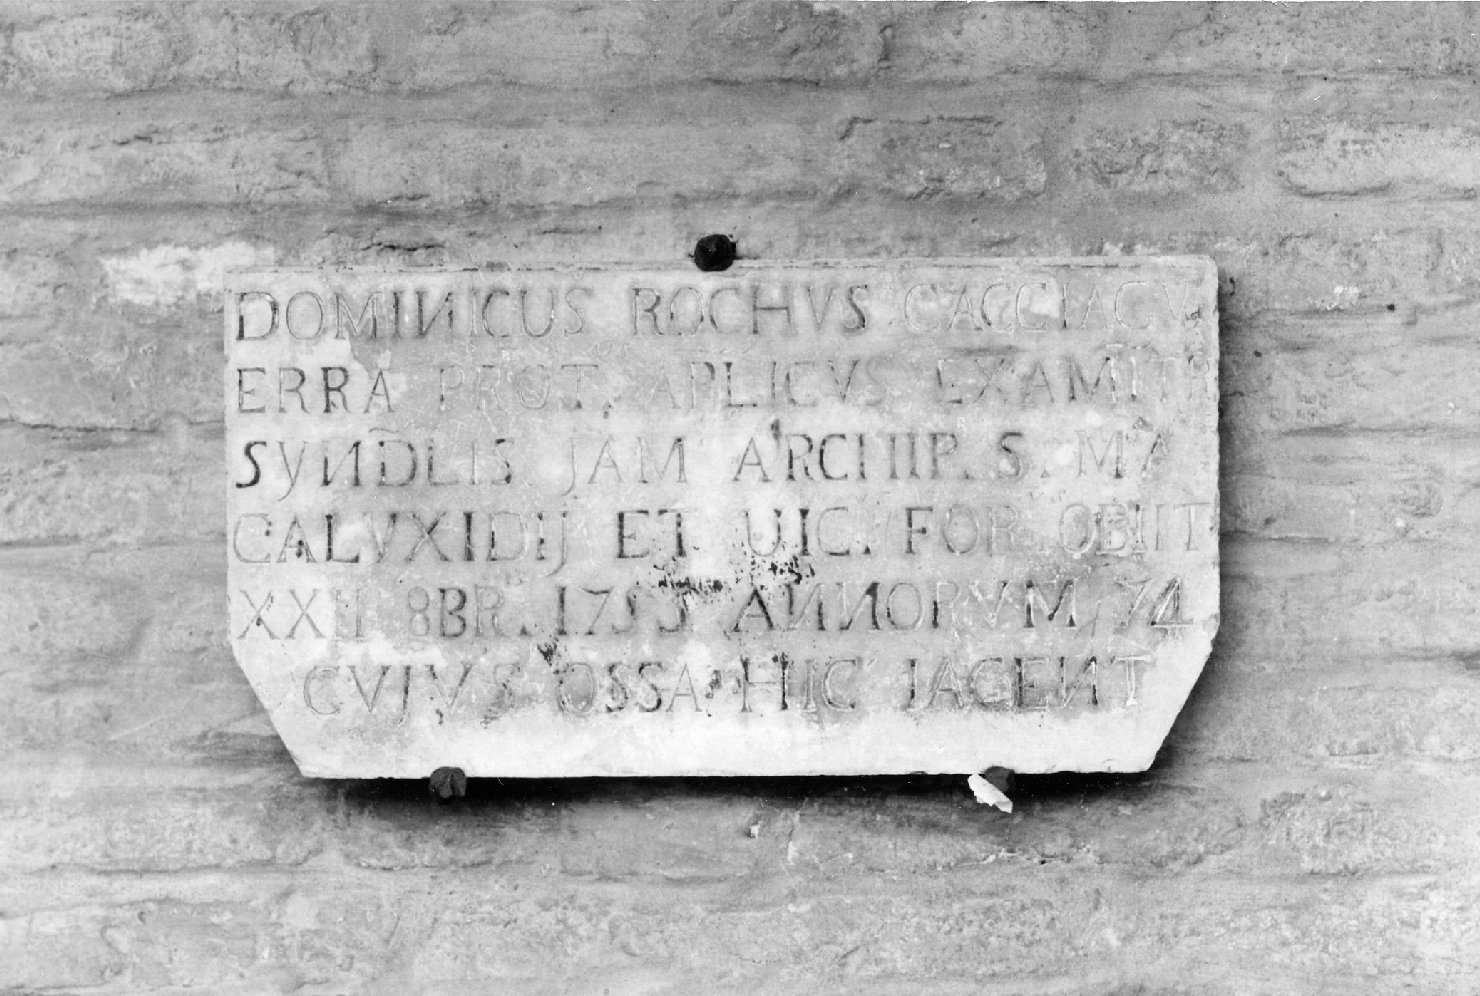 DOMINICUS ROCHVS CACCIAGV
ERRA PROT. APLICVS EXAMITR
SYNDLIS JAM ARCHIP. S. MA
CALVXIDIJ ET UIC. FOR. OBIIT
XXII 8BR. 1753 ANNORVM 74
CVJVS OSSA HIC JACENT